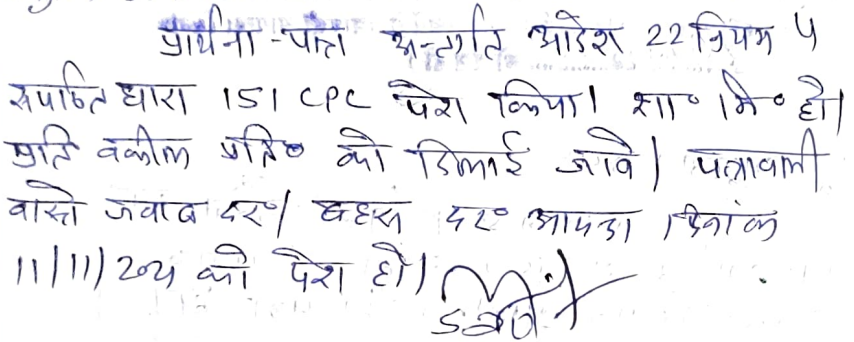 प्रार्थना-पत्र अन्तर्गत आदेश 22 नियम 4
सपठित धारा 151 CPC पेश किया। शा० मि० हो।
प्रति वकील प्रति० को दिलाई जावे। पत्रावली
वास्ते जवाब दर०/ बहस दर० आयन्दा दिनांक
11/11/2024 को पेश हो।